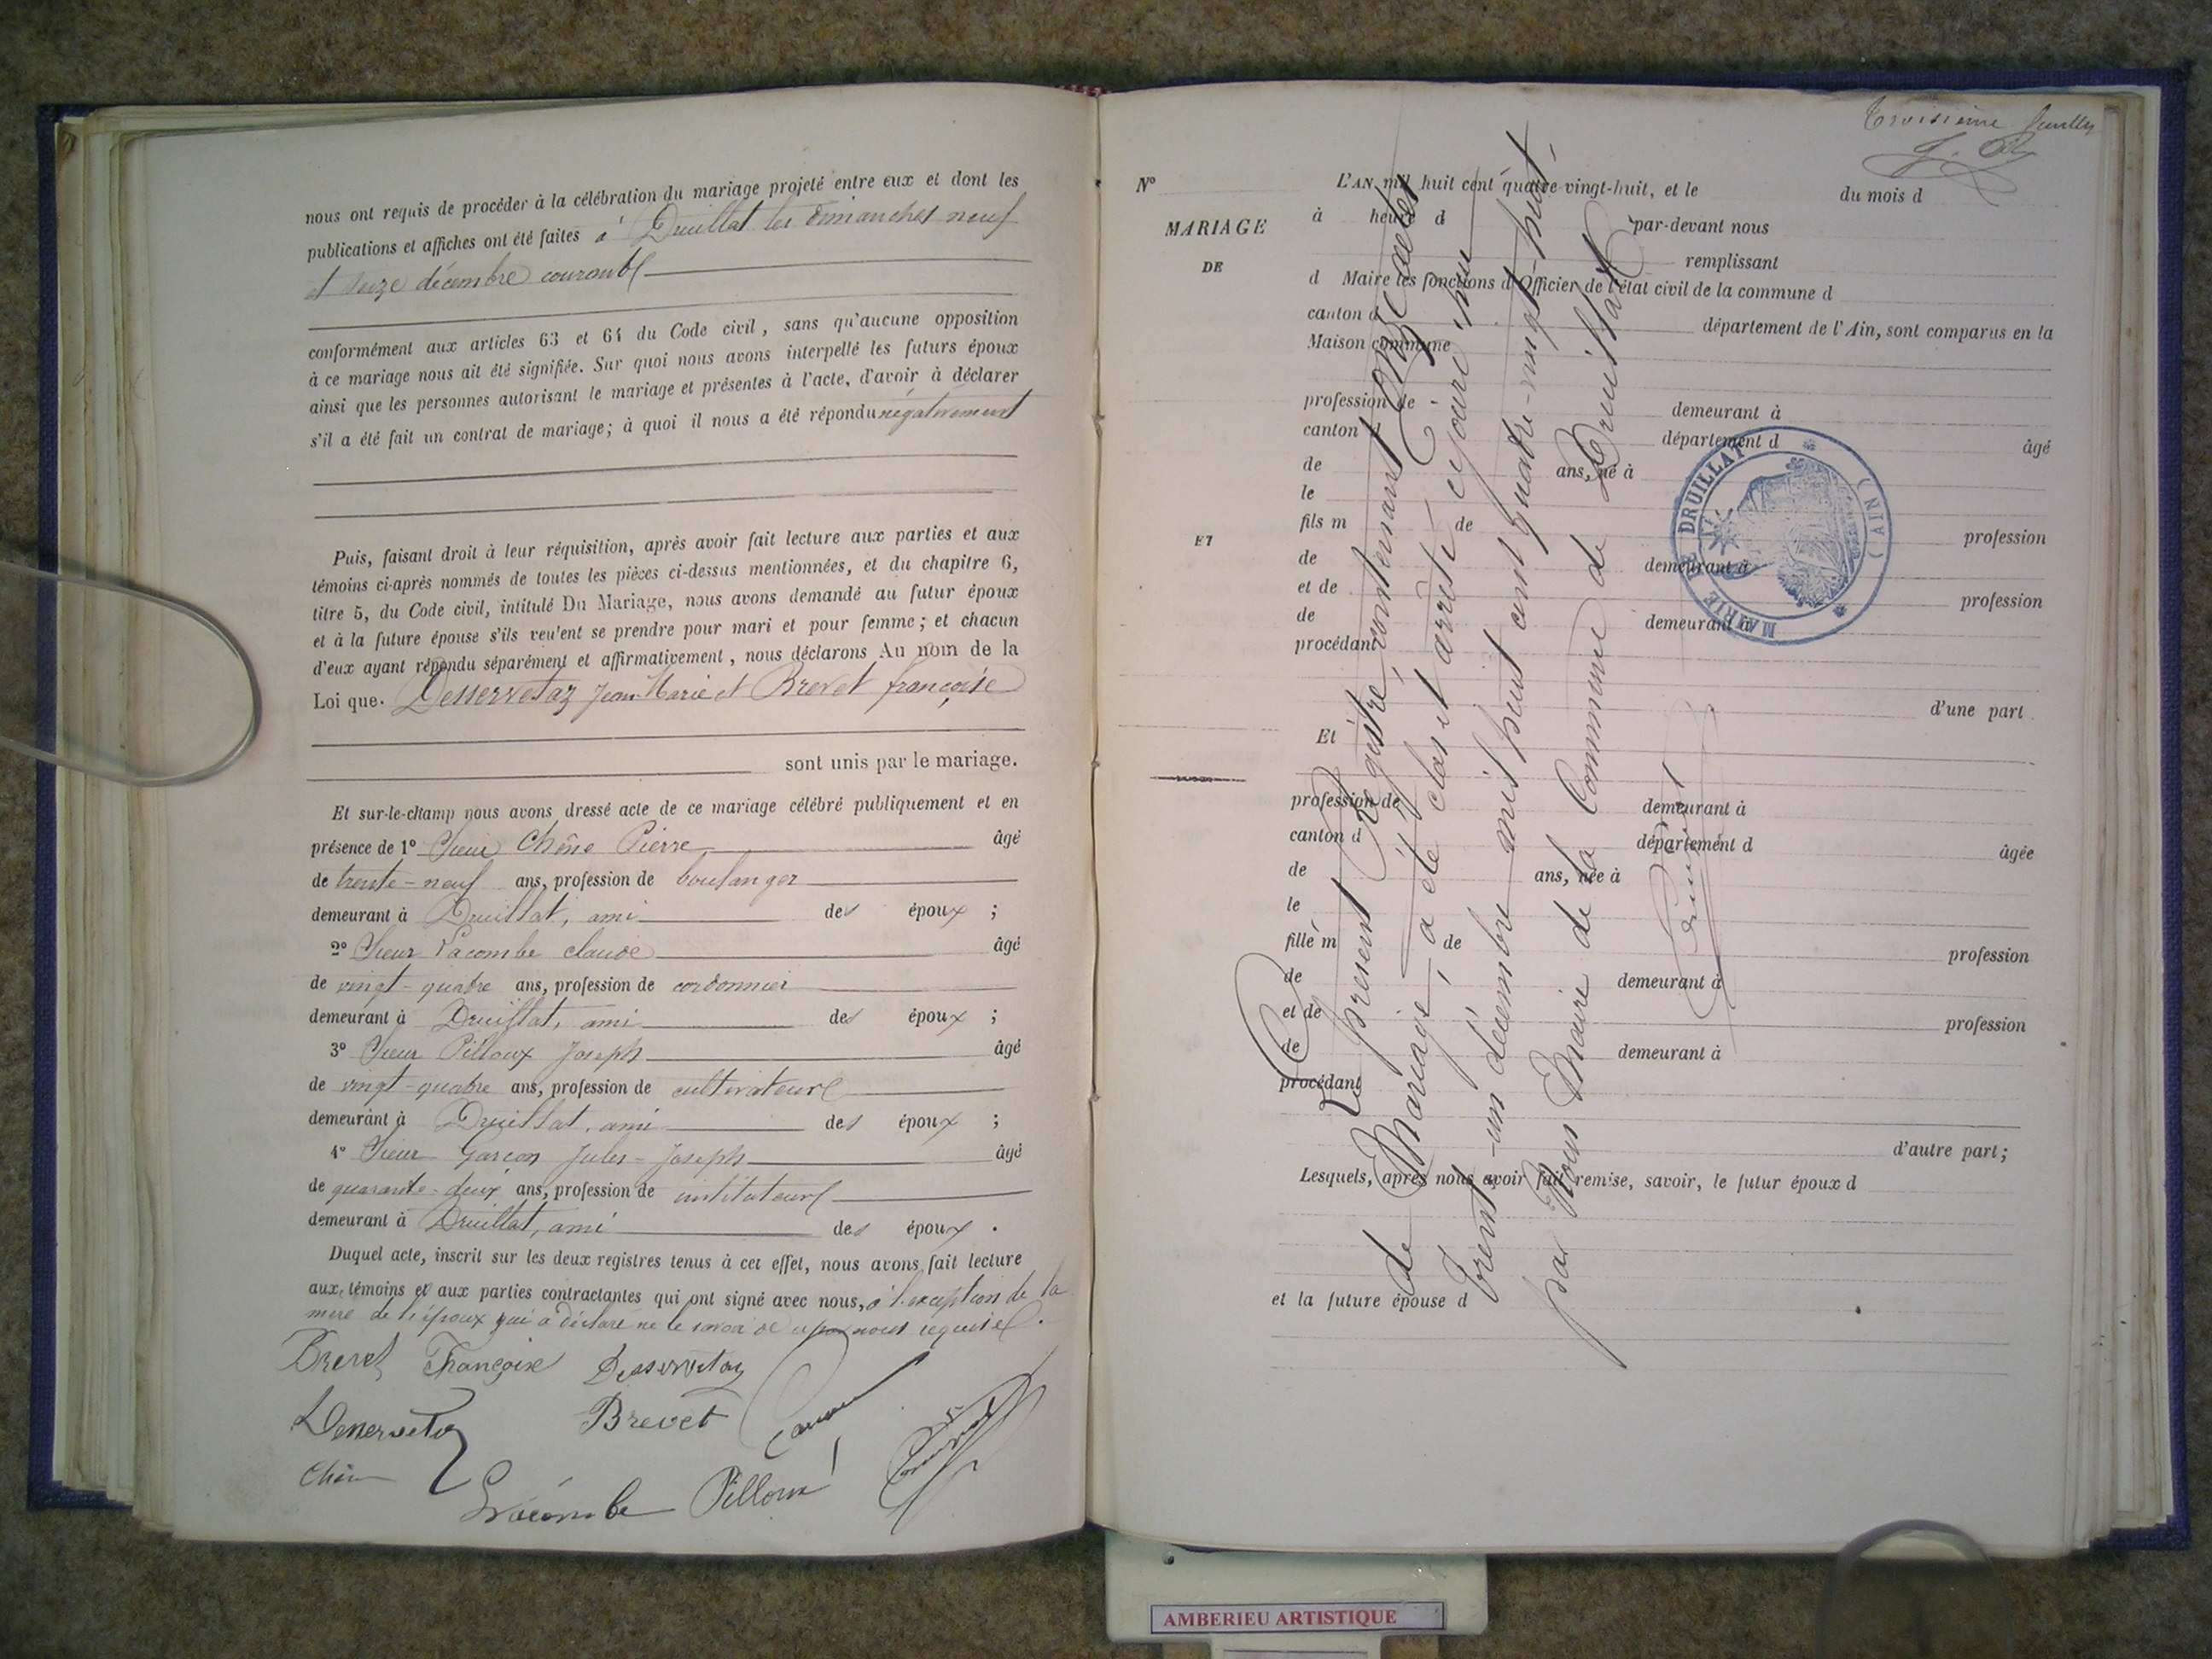 nous ont requis de procéder à la célébration du mariage projeté entre eux et dont les
publications et affiches ont été faites à Druillat les dimanches neuf
et seize décembre courant
conformément aux articles 63 et 64 du Code civil, sans qu'aucune opposition
à ce mariage nous ait été signifiée. Sur quoi nous avons interpellé les futurs époux
ainsi que les personnes autorisant le mariage et présentes à l'acte, d'avoir à déclarer
s'il a été fait un contrat de mariage; à quoi il nous a été répondu négativement
Puis, faisant droit à leur réquisition, après avoir fait lecture aux parties et aux
témoins ci-après nommés de toutes les pièces ci-dessus mentionnées, et du chapitre 6,
titre 5, du Code civil, intitulé Du Mariage, nous avons demandé au futur époux
et à la future épouse s'ils veulent se prendre pour mari et pour femme; et chacun
d'eux ayant répondu séparément et affirmativement, nous déclarons Au nom de la
Loi que. Desservetaz Jean-Marie et Brevet françoise
sont unis par le mariage.
Et sur-le-champ nous avons dressé acte de ce mariage célébré publiquement et en
présence de 1° Sieur Chêne Pierre âgé
de trente-neuf ans, profession de boulanger
demeurant à Druillat, ami des époux ;
2° Sieur Lacombe claude âgé
de vingt-quatre ans, profession de cordonnier
demeurant à Druillat, ami des époux ;
3° Sieur Pilloux Joseph âgé
de vingt-quatre ans, profession de cultivateur
demeurant à Druillat, ami des époux ;
4° Sieur Garçon Jules-Joseph âgé
de quarante-deux ans, profession de instituteur
demeurant à Druillat, ami des époux .
Duquel acte, inscrit sur les deux registres tenus à cet effet, nous avons fait lecture
aux témoins et aux parties contractantes qui ont signé avec nous, à l'exception de la
mère de l'époux qui a déclaré ne le savoir de ce par nous requise.
Brevet Françoise Desservetaz
Desservetaz Brevet
Chêne Lacombe Pilloux
Troisième feuillet
N°
MARIAGE
DE
ET
L'AN mil huit cent quatre-vingt-huit, et le du mois d
à heure d par-devant nous
remplissant
d Maire les fonctions d'Officier de l'état civil de la commune d
canton d département de l'Ain, sont comparus en la
Maison commune
profession de demeurant à
canton d département d âgé
de ans, né à
le
fils m de profession
de demeurant à
et de profession
de demeurant à
procédant
d'une part
Et
profession de demeurant à
canton d département d âgée
de ans, née à
le
fille m de profession
de demeurant à
et de profession
de demeurant à
procédant
d'autre part;
Lesquels, après nous avoir fait remise, savoir, le futur époux d
et la future épouse d
Le présent Registre contenant Onze actes
de Mariage, a été clos et arrêté ce jourd'hui
trente-un décembre mil huit cent quatre-vingt-huit,
par Nous Maire de la Commune de Druillat
MAIRIE DE DRUILLAT (AIN)
AMBERIEU ARTISTIQUE